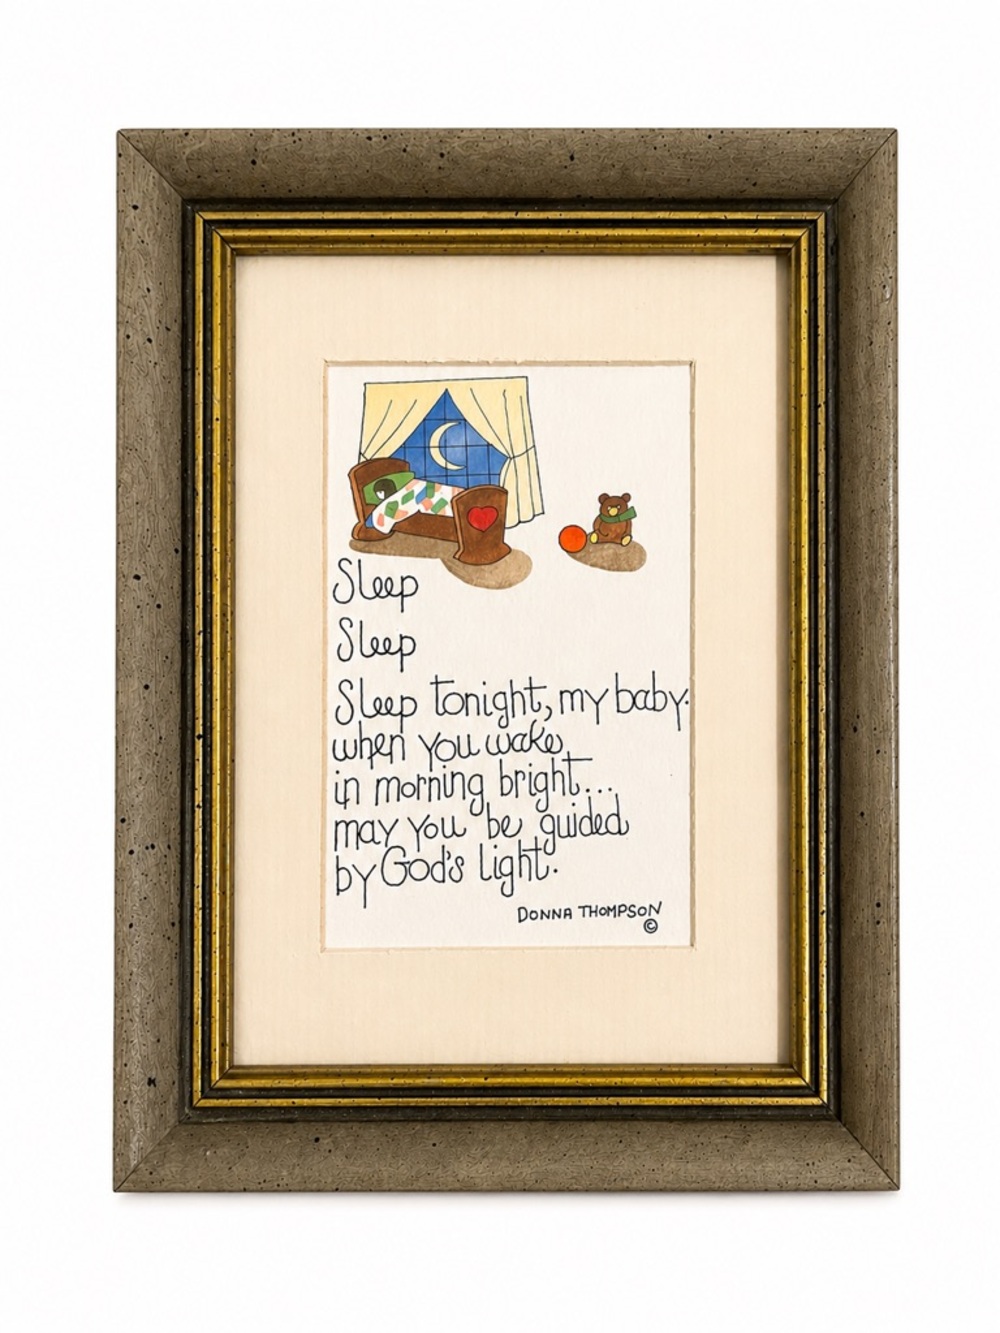 Sleep
Sleep
Sleep tonight, my baby.
when you wake
in morning bright...
may you be guided
by God's light.
DONNA THOMPSON
©